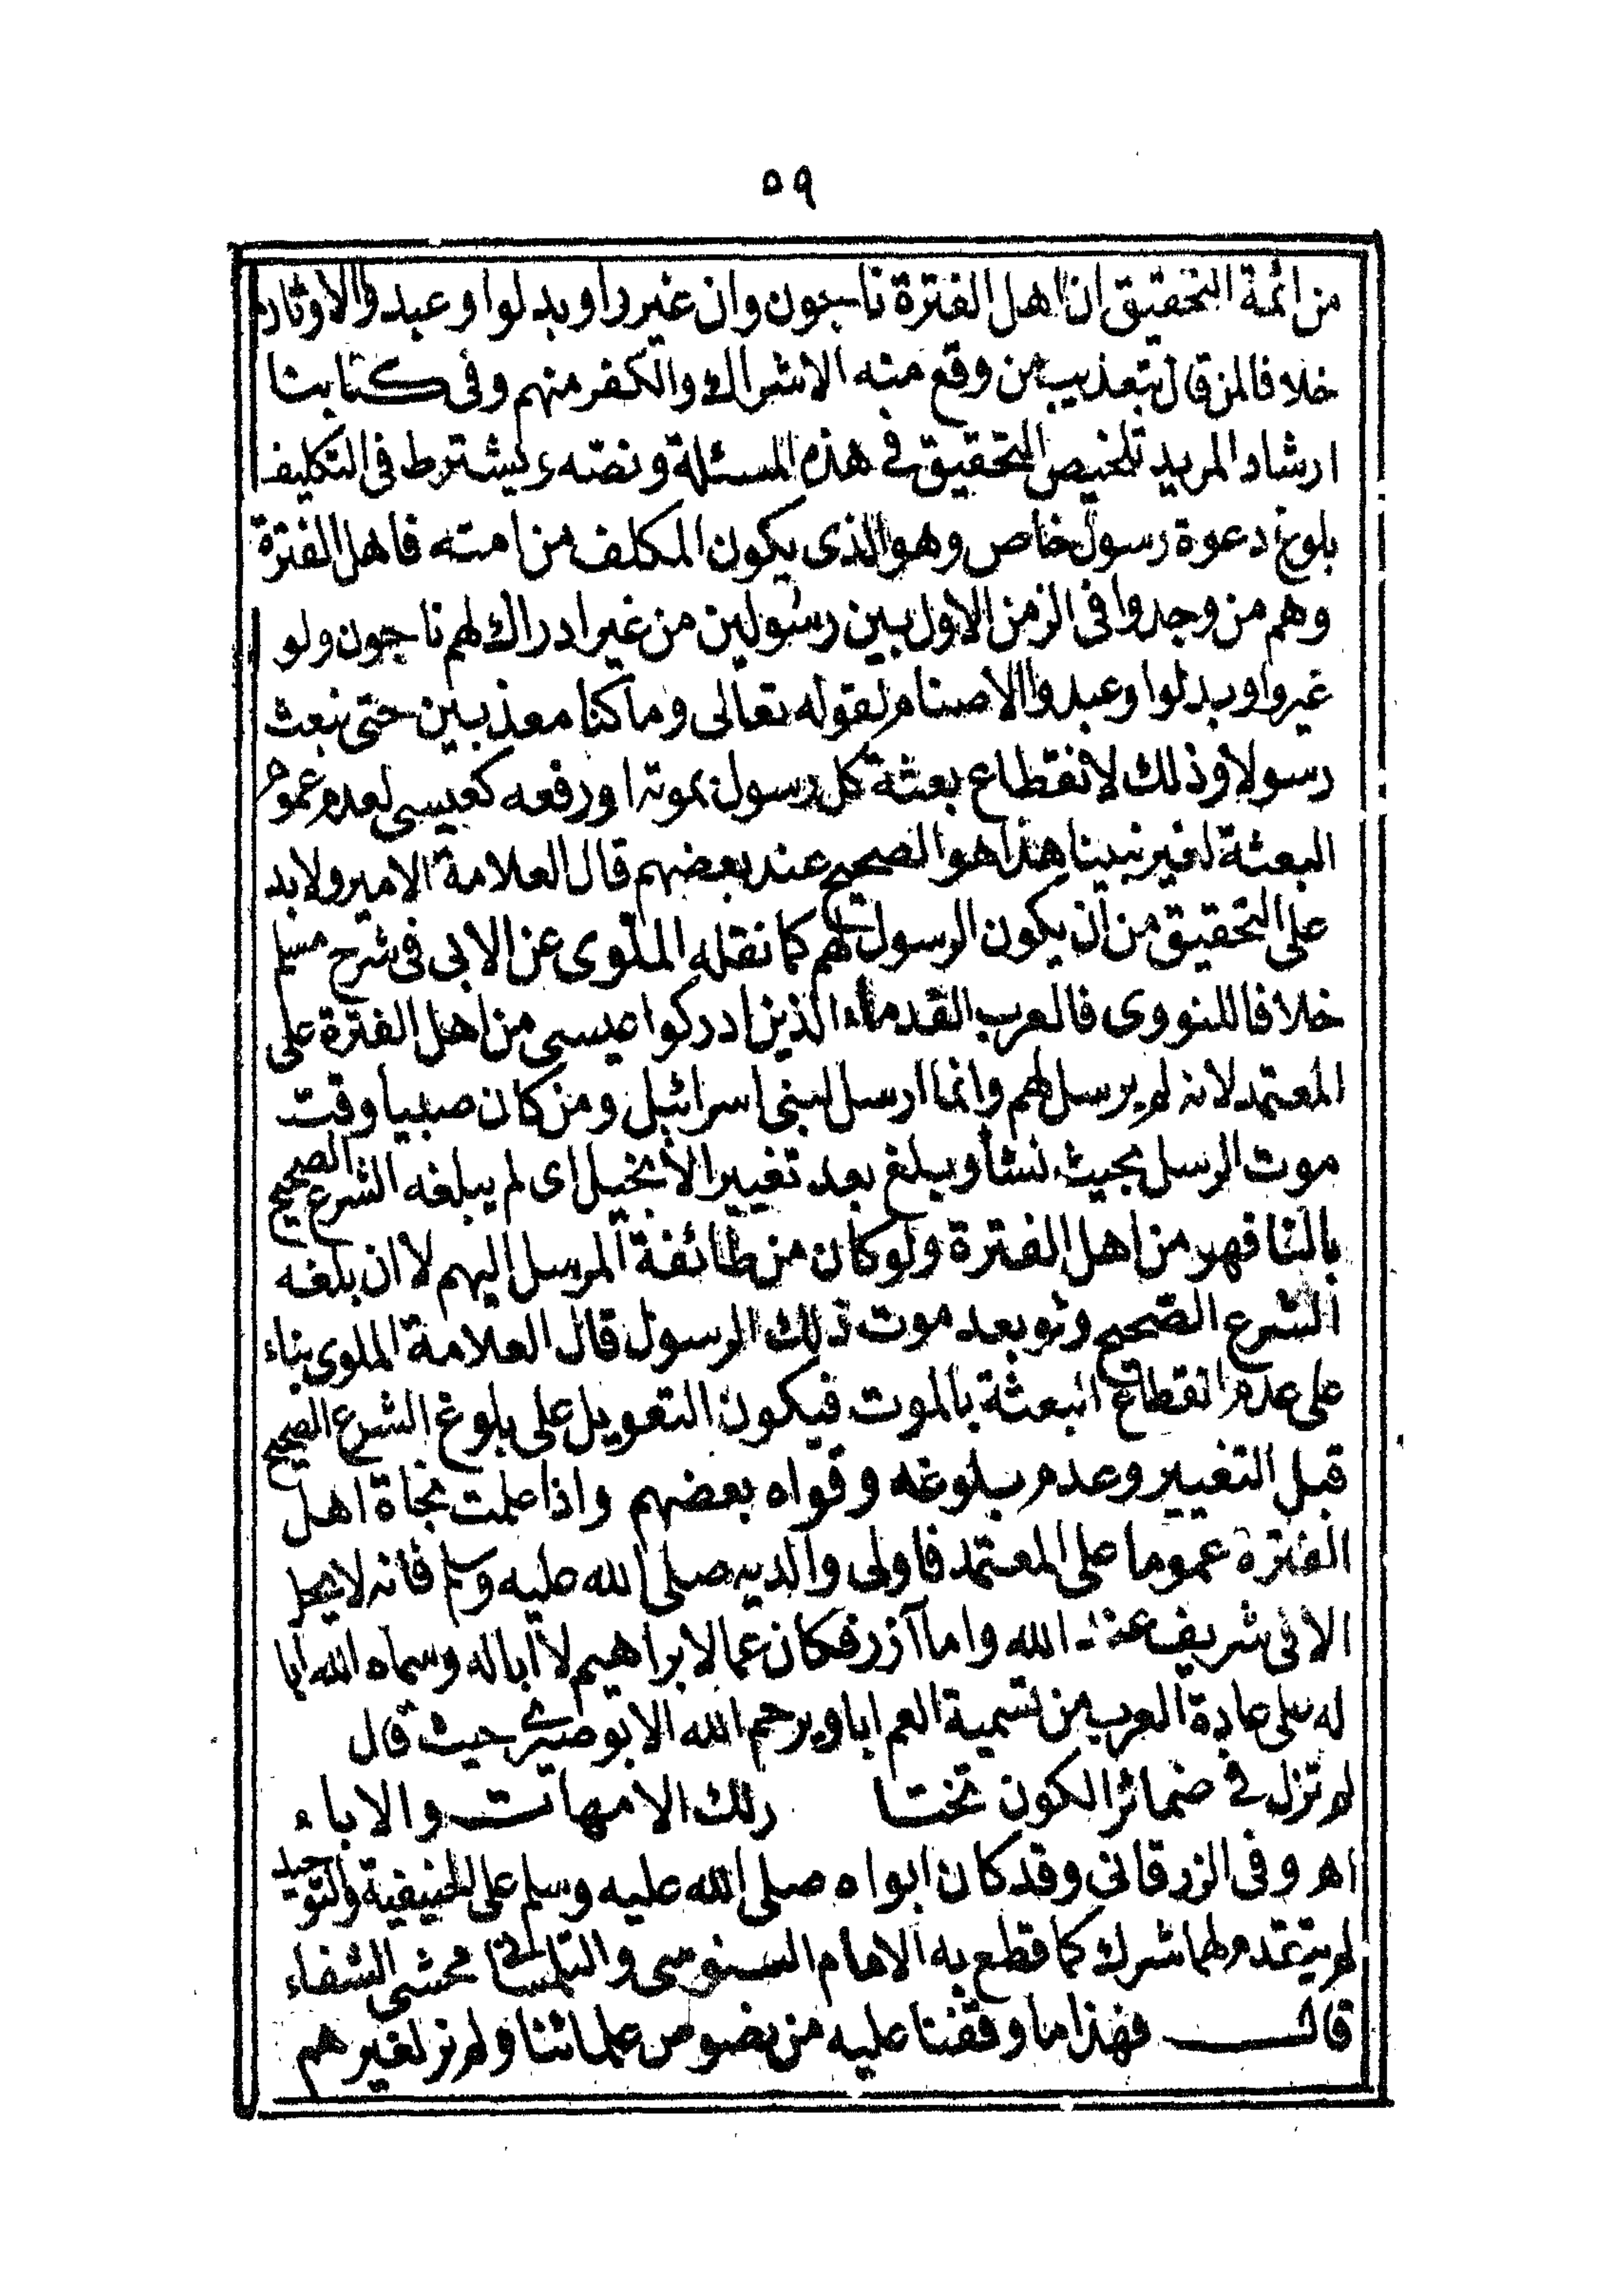 ٥٩
من ائمة التحقيق ان اهل الفترة ناجون وان غيروا وبدلوا وعبدوا الاوثان
خلافا لمن قال بتعذيب من وقع منه الاشراك والكفر منهم وفى كتابنا
ارشاد المريد تلخيص التحقيق فى هذه المسئلة ونصه ويشترط فى التكليف
بلوغ دعوة رسول خاص وهو الذى يكون المكلف من امته فاهل الفترة
وهم من وجدوا فى الزمن الاول بين رسولين من غير ادراك لهم ناجون ولو
غيروا وبدلوا وعبدوا الاصنام لقوله تعالى وما كنا معذبين حتى نبعث
رسولا وذلك لانقطاع بعثة كل رسول بموته او رفعه كعيسى لعدم عموم
البعثة لغير نبينا هذا هو الصحيح عند بعضهم قال العلامة الامير ولا بد
على التحقيق من ان يكون الرسول لهم كما نقله الملوى عن الابى فى شرح مسلم
خلافا للنووى فالعرب القدماء الذين ادركوا عيسى من اهل الفترة على
المعتمد لانه لم يرسل لهم وانما ارسل لبنى اسرائيل ومن كان صبيا وقت
موت الرسل بحيث نشأ وبلغ بعد تغيير الانجيل اى لم يبلغه الشرع الصحيح
بالغا فهو من اهل الفترة ولو كان من طائفة المرسل اليهم لا ان بلغه
الشرع الصحيح ولو بعد موت ذلك الرسول قال العلامة الملوى بناء
على عدم انقطاع البعثة بالموت فيكون التعويل على بلوغ الشرع الصحيح
قبل التغيير وعدم بلوغه وقواه بعضهم واذا علمت نجاة اهل
الفترة عموما على المعتمد فاولى والديه صلى الله عليه وسلم فانه لا يحل
الا فى شريف عند الله واما آزر فكان عما لابراهيم لا ابا له وسماه الله ابا
له على عادة العرب من تسمية العم ابا ويرحم الله الابوصيرى حيث قال
لم تزل فى ضمائر الكون تختا رلك الامهات والاباء
اهـ وفى الزرقانى وقد كان ابواه صلى الله عليه وسلم على الحنيفية والتوحيد
لم يتقدم لهما شرك كما قطع به الامام السنوسى والتلمسانى محشى الشفاء
قال فهذا ما وقفنا عليه من نصوص علمائنا ولم نر لغيرهم